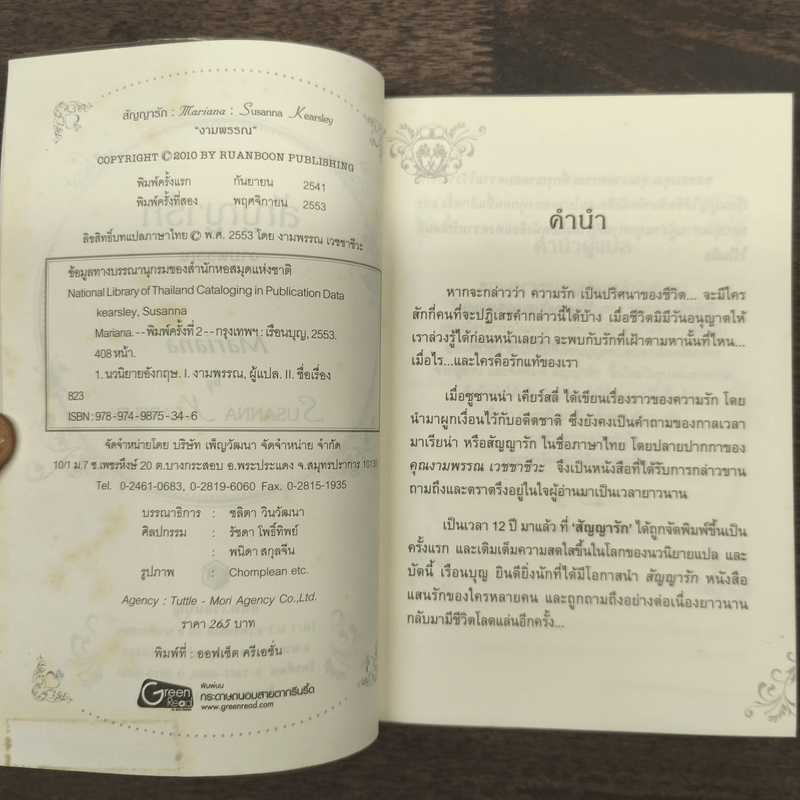 สัญญารัก : Mariana : Susanna Kearsley
"งามพรรณ"
COPYRIGHT © 2010 BY RUANBOON PUBLISHING
พิมพ์ครั้งแรก กันยายน 2541
พิมพ์ครั้งที่สอง พฤศจิกายน 2553
ลิขสิทธิ์บทแปลภาษาไทย © พ.ศ. 2553 โดย งามพรรณ เวชชาชีวะ
ข้อมูลทางบรรณานุกรมของสำนักหอสมุดแห่งชาติ
National Library of Thailand Cataloging in Publication Data
kearsley, Susanna
Mariana. -- พิมพ์ครั้งที่ 2 -- กรุงเทพฯ : เรือนบุญ, 2553.
408 หน้า.
1. นวนิยายอังกฤษ. I. งามพรรณ, ผู้แปล. II. ชื่อเรื่อง
823
ISBN : 978-974-9875-34-6
จัดจำหน่ายโดย บริษัท เพ็ญวัฒนา จัดจำหน่าย จำกัด
10/1 ม.7 ซ.เพชรหึงษ์ 20 ต.บางกระสอบ อ.พระประแดง จ.สมุทรปราการ 10130
Tel. 0-2461-0683, 0-2819-6060 Fax. 0-2815-1935
บรรณาธิการ : ชลิตา วินวัฒนา
ศิลปกรรม : รัชดา โพธิ์ทิพย์
: พนิดา สกุลจีน
รูปภาพ : Chomplean etc.
Agency : Tuttle - Mori Agency Co.,Ltd.
ราคา 265 บาท
พิมพ์ที่ : ออฟเซ็ต ครีเอชั่น
Green Read
พิมพ์บน
กระดาษถนอมสายตากรีนรี้ด
www.greenread.com
คำนำ
หากจะกล่าวว่า ความรัก เป็นปริศนาของชีวิต... จะมีใคร
สักกี่คนที่จะปฏิเสธคำกล่าวนี้ได้บ้าง เมื่อชีวิตมิมีวันอนุญาตให้
เราล่วงรู้ได้ก่อนหน้าเลยว่า จะพบกับรักที่เฝ้าตามหานั้นที่ไหน...
เมื่อไร...และใครคือรักแท้ของเรา
เมื่อซูซานน่า เคียร์สลี่ ได้เขียนเรื่องราวของความรัก โดย
นำมาผูกเงื่อนไว้กับอดีตชาติ ซึ่งยังคงเป็นคำถามของกาลเวลา
มาเรียน่า หรือสัญญารัก ในชื่อภาษาไทย โดยปลายปากกาของ
คุณงามพรรณ เวชชาชีวะ จึงเป็นหนังสือที่ได้รับการกล่าวขาน
ถามถึงและตราตรึงอยู่ในใจผู้อ่านมาเป็นเวลายาวนาน
เป็นเวลา 12 ปี มาแล้ว ที่ 'สัญญารัก' ได้ถูกจัดพิมพ์ขึ้นเป็น
ครั้งแรก และเติมเต็มความสดใสขึ้นในโลกของนวนิยายแปล และ
บัดนี้ เรือนบุญ ยินดียิ่งนักที่ได้มีโอกาสนำ สัญญารัก หนังสือ
แสนรักของใครหลายคน และถูกถามถึงอย่างต่อเนื่องยาวนาน
กลับมามีชีวิตโลดแล่นอีกครั้ง...